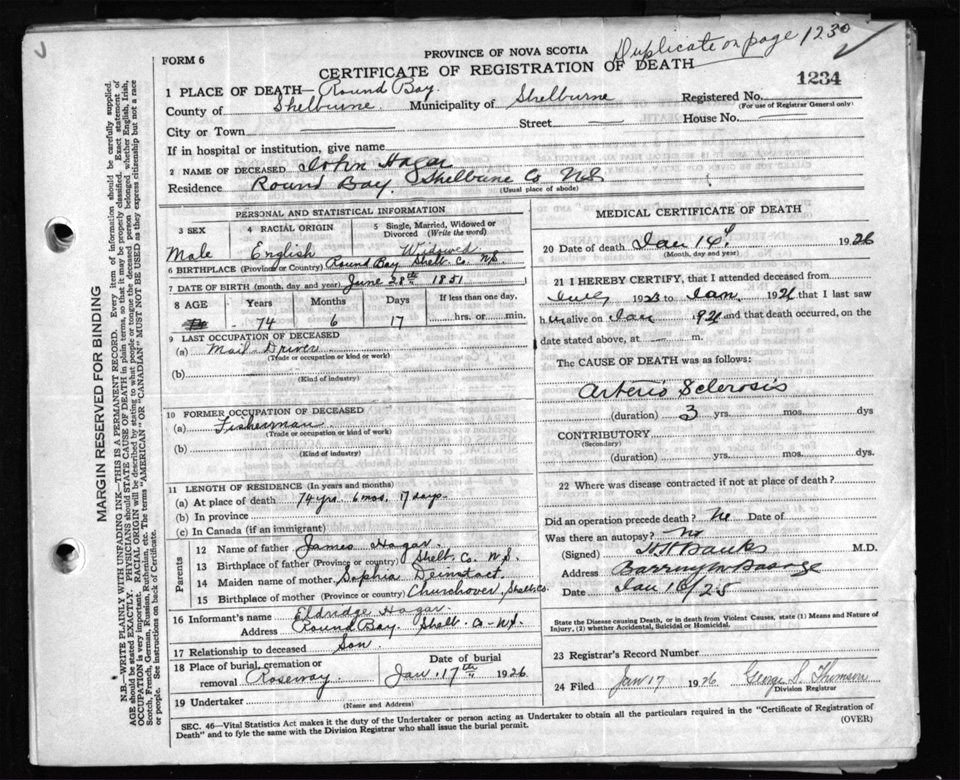 Duplicate on page 1230
PROVINCE OF NOVA SCOTIA
FORM 6
CERTIFICATE OF REGISTRATION OF DEATH
1234
1 PLACE OF DEATH— Round Bay.
County of Shelburne. Municipality of Shelburne Registered No.
(For use of Registrar General only)
City or Town Street House No.
If in hospital or institution, give name
2 NAME OF DECEASED John Hagar
Residence Round Bay, Shelburne Co N.S.
(Usual place of abode)
PERSONAL AND STATISTICAL INFORMATION
3 SEX 4 RACIAL ORIGIN 5 Single, Married, Widowed or Divorced (Write the word)
Male English Widowed
6 BIRTHPLACE (Province or Country) Round Bay Shelt. Co. N.S.
7 DATE OF BIRTH (month, day, and year) June 28th 1851
8 AGE Years Months Days If less than one day,
74 6 17 hrs. or min.
9 LAST OCCUPATION OF DECEASED
(a) Mail Driver
(Trade or occupation or kind or work)
(b)
(Kind of industry)
10 FORMER OCCUPATION OF DECEASED
(a) Fisherman
(Trade or occupation or kind of work)
(b)
(Kind of industry)
11 LENGTH OF RESIDENCE (In years and months)
(a) At place of death 74 yrs. 6 mos. 17 days.
(b) In province
(c) In Canada (if an immigrant)
Parents
12 Name of father James Hagar.
13 Birthplace of father (Province or country) Shelt. Co. N.S.
14 Maiden name of mother Sophia
15 Birthplace of mother (Province or country) Churchover, Shelt Co.
16 Informant's name Eldridge Hagar.
Address Round Bay. Shelt. Co. N.S.
17 Relationship to deceased Son.
18 Place of burial, cremation or removal Roseway. Date of burial Jan. 17th 1926
19 Undertaker
(Name and Address)
MEDICAL CERTIFICATE OF DEATH
20 Date of death Jan 14 1926
(Month, day and year)
21 I HEREBY CERTIFY, that I attended deceased from
1923 to Jan 1926 that I last saw
h im alive on Jan 1926 and that death occurred, on the
date stated above, at — m.
The CAUSE OF DEATH was as follows:
Arterio Sclerosis
(duration) 3 yrs. mos. dys
CONTRIBUTORY
(Secondary)
(duration) yrs. mos. dys.
22 Where was disease contracted if not at place of death?
Did an operation precede death? No Date of
Was there an autopsy? No
(Signed) Banks M.D.
Address Barrington Passage
Date Jan 16/25
State the Disease causing Death, or in death from Violent Causes, state (1) Means and Nature of
Injury, (2) whether Accidental, Suicidal or Homicidal.
23 Registrar's Record Number
24 Filed Jan 17 1926 George S. Thomson
Division Registrar
SEC. 46—Vital Statistics Act makes it the duty of the Undertaker or person acting as Undertaker to obtain all the particulars required in the "Certificate of Registration of
Death" and to fyle the same with the Division Registrar who shall issue the burial permit.
(OVER)
MARGIN RESERVED FOR BINDING
N.B.—WRITE PLAINLY WITH UNFADING INK—THIS IS A PERMANENT RECORD. Every item of information should be carefully supplied.
AGE should be stated EXACTLY. PHYSICIANS should STATE CAUSE OF DEATH in plain terms, so that it may be properly classified. Exact statement of
OCCUPATION is very important. RACIAL ORIGIN will be described by stating to what people or tongue the deceased person belonged whether English, Irish,
Scotch, French, German, Russian, Ruthenian, etc. The terms "AMERICAN" or "CANADIAN" MUST NOT BE USED as they express citizenship but not a race
or people. See instructions on back of Certificate.